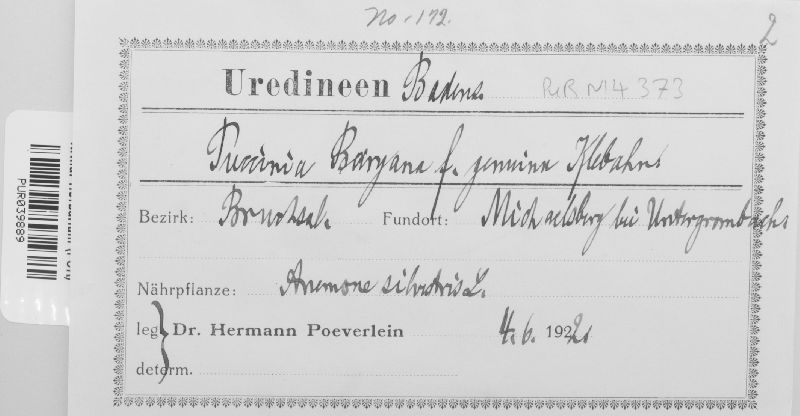 No. 172.
2
Uredineen Badens.
Puccinia Baryana f. genuina Klebahn.
Bezirk: Bruchsal. Fundort: Michaelsberg bei Untergrombach.
Nährpflanze: Anemone silvestris L.
leg. } Dr. Hermann Poeverlein 4. 6. 1922.
determ.
PUR039889